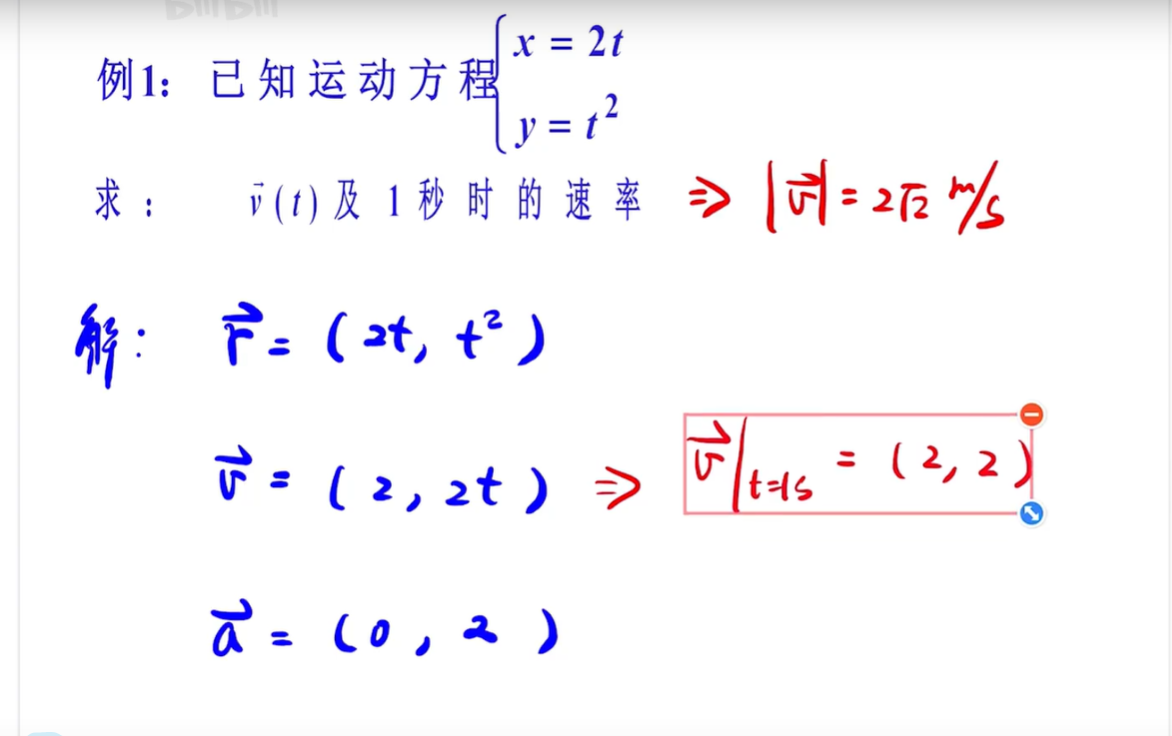 bilibili
例1：已知运动方程{x = 2t
y = t²
求： v⃗(t)及1秒时的速率 ⇒ |v⃗| = 2√2 m/s
解： r⃗ = (2t, t²)
v⃗ = (2, 2t) ⇒ v⃗|t=1s = (2, 2)
a⃗ = (0, 2)